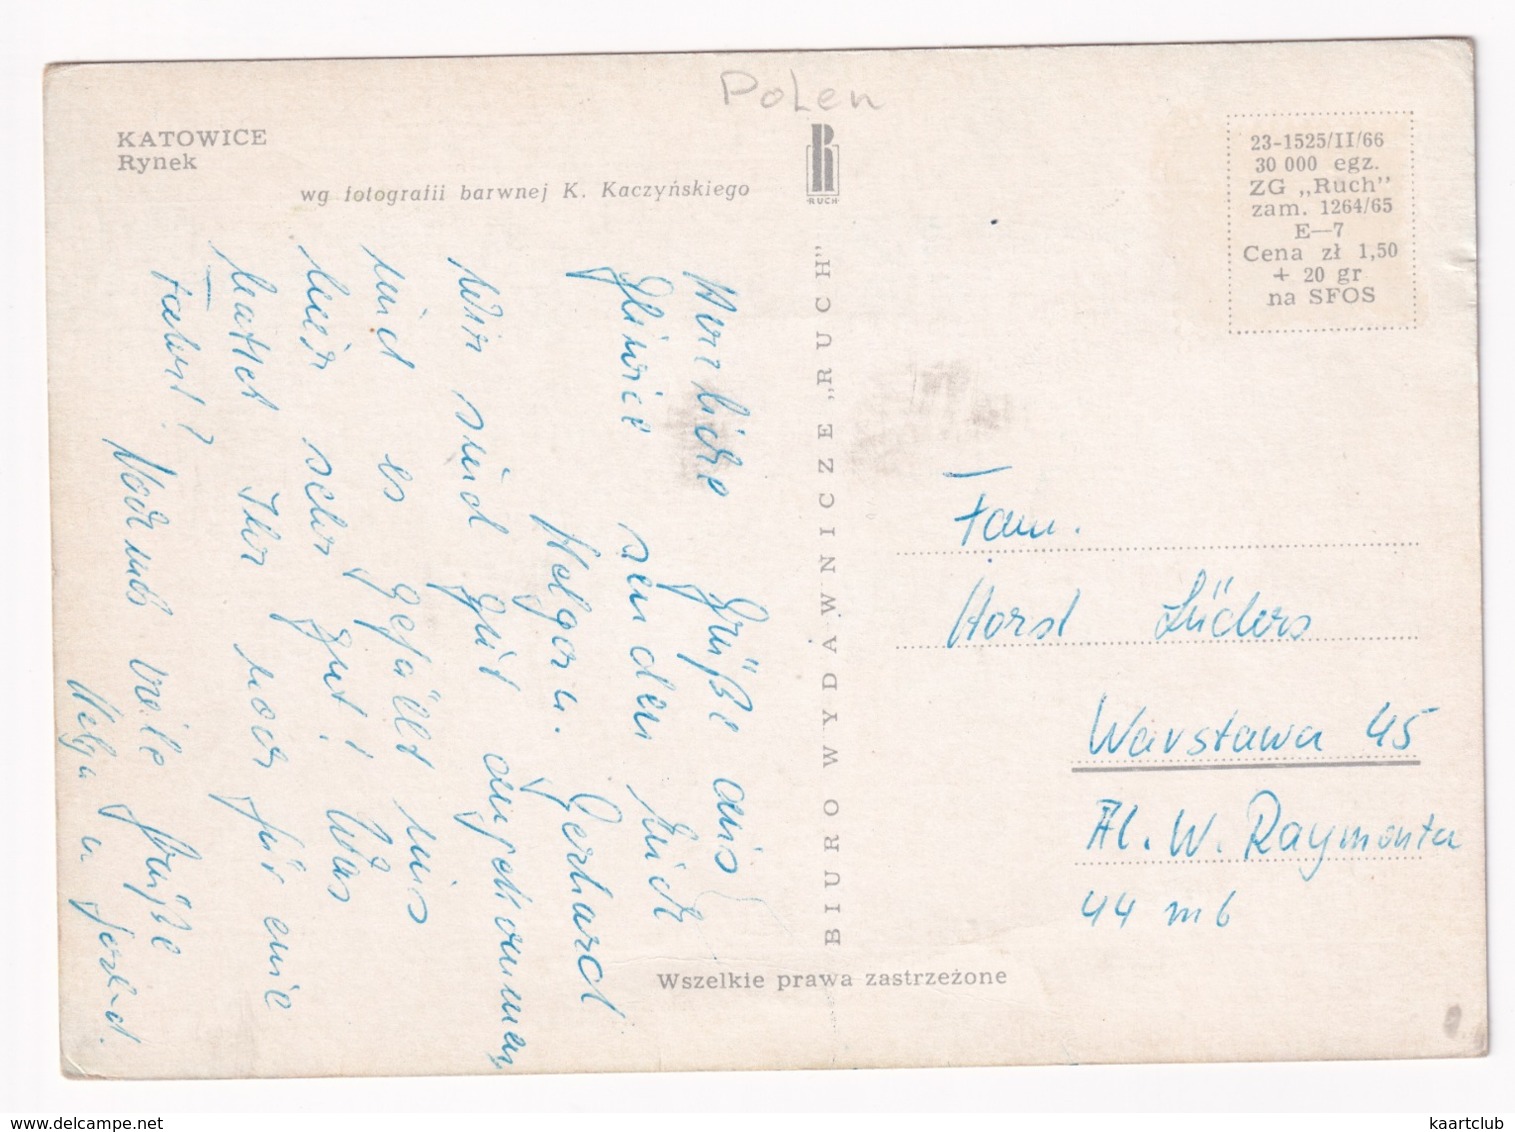 Polen
KATOWICE
Rynek
wg fotografii barwnej K. Kaczyńskiego
RUCH
23-1525/II/66
30 000 egz.
ZG „Ruch”
zam. 1264/65
E—7
Cena zł 1,50
+ 20 gr
na SFOS
Herzliche Grüße aus
Gliwice senden Euch
Helga u. Gerhard
Wir sind gut angekommen
und es gefällt uns
hier sehr gut! Was
hattet Ihr noch für eine
Fahrt?
Nochmals viele Grüße
Helga u Gerhard.
BIURO WYDAWNICZE „RUCH”
Fam.
Horst Lüders
Warstawa 45
Al. W. Raymonta
44 m 6
Wszelkie prawa zastrzeżone
www.delcampe.net
kaartclub